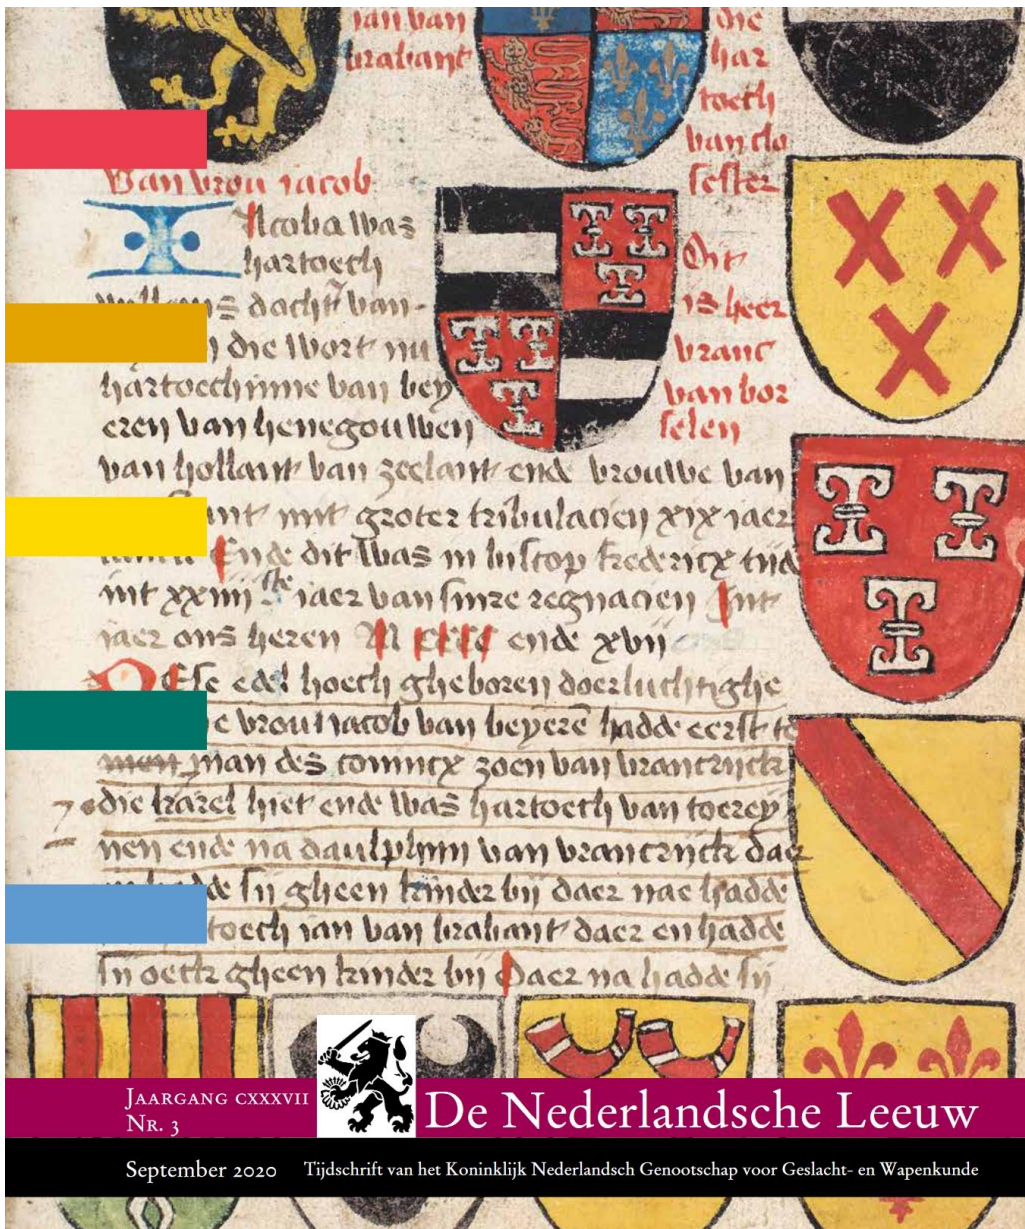 ian van
brabant
die
har
toech
van clo
sester
Van vrou iacob
Acoba was
hartoech
s dochter van
die wort nu
hartoechinne van bey
eren van henegouwen
van hollant van zeelant ende vrouwe van
Dit
is heer
vranc
van bor
selen
ant mit groter tribulacien xix iaer
Ende dit was in biscop fredericx tijde
int xxiiii ste iaer van sinre regnacien Int
iaer ons heren M CCCC ende xvij
Dese edel hoech gheboren doerluchtighe
e vrou iacob van beyeren hadde eerst te
man des conincx zoen van vrancrijck
die karel hiet ende was hartoech van toerey
nen ende na daulphijn van vrancrijck daer
hadde sij gheen kinder bij daer nae hadde
toech ian van brabant daer en hadde
sij oeck gheen kinder bij Daer na hadde sij
JAARGANG CXXXVII
NR. 3
De Nederlandsche Leeuw
September 2020
Tijdschrift van het Koninklijk Nederlandsch Genootschap voor Geslacht- en Wapenkunde